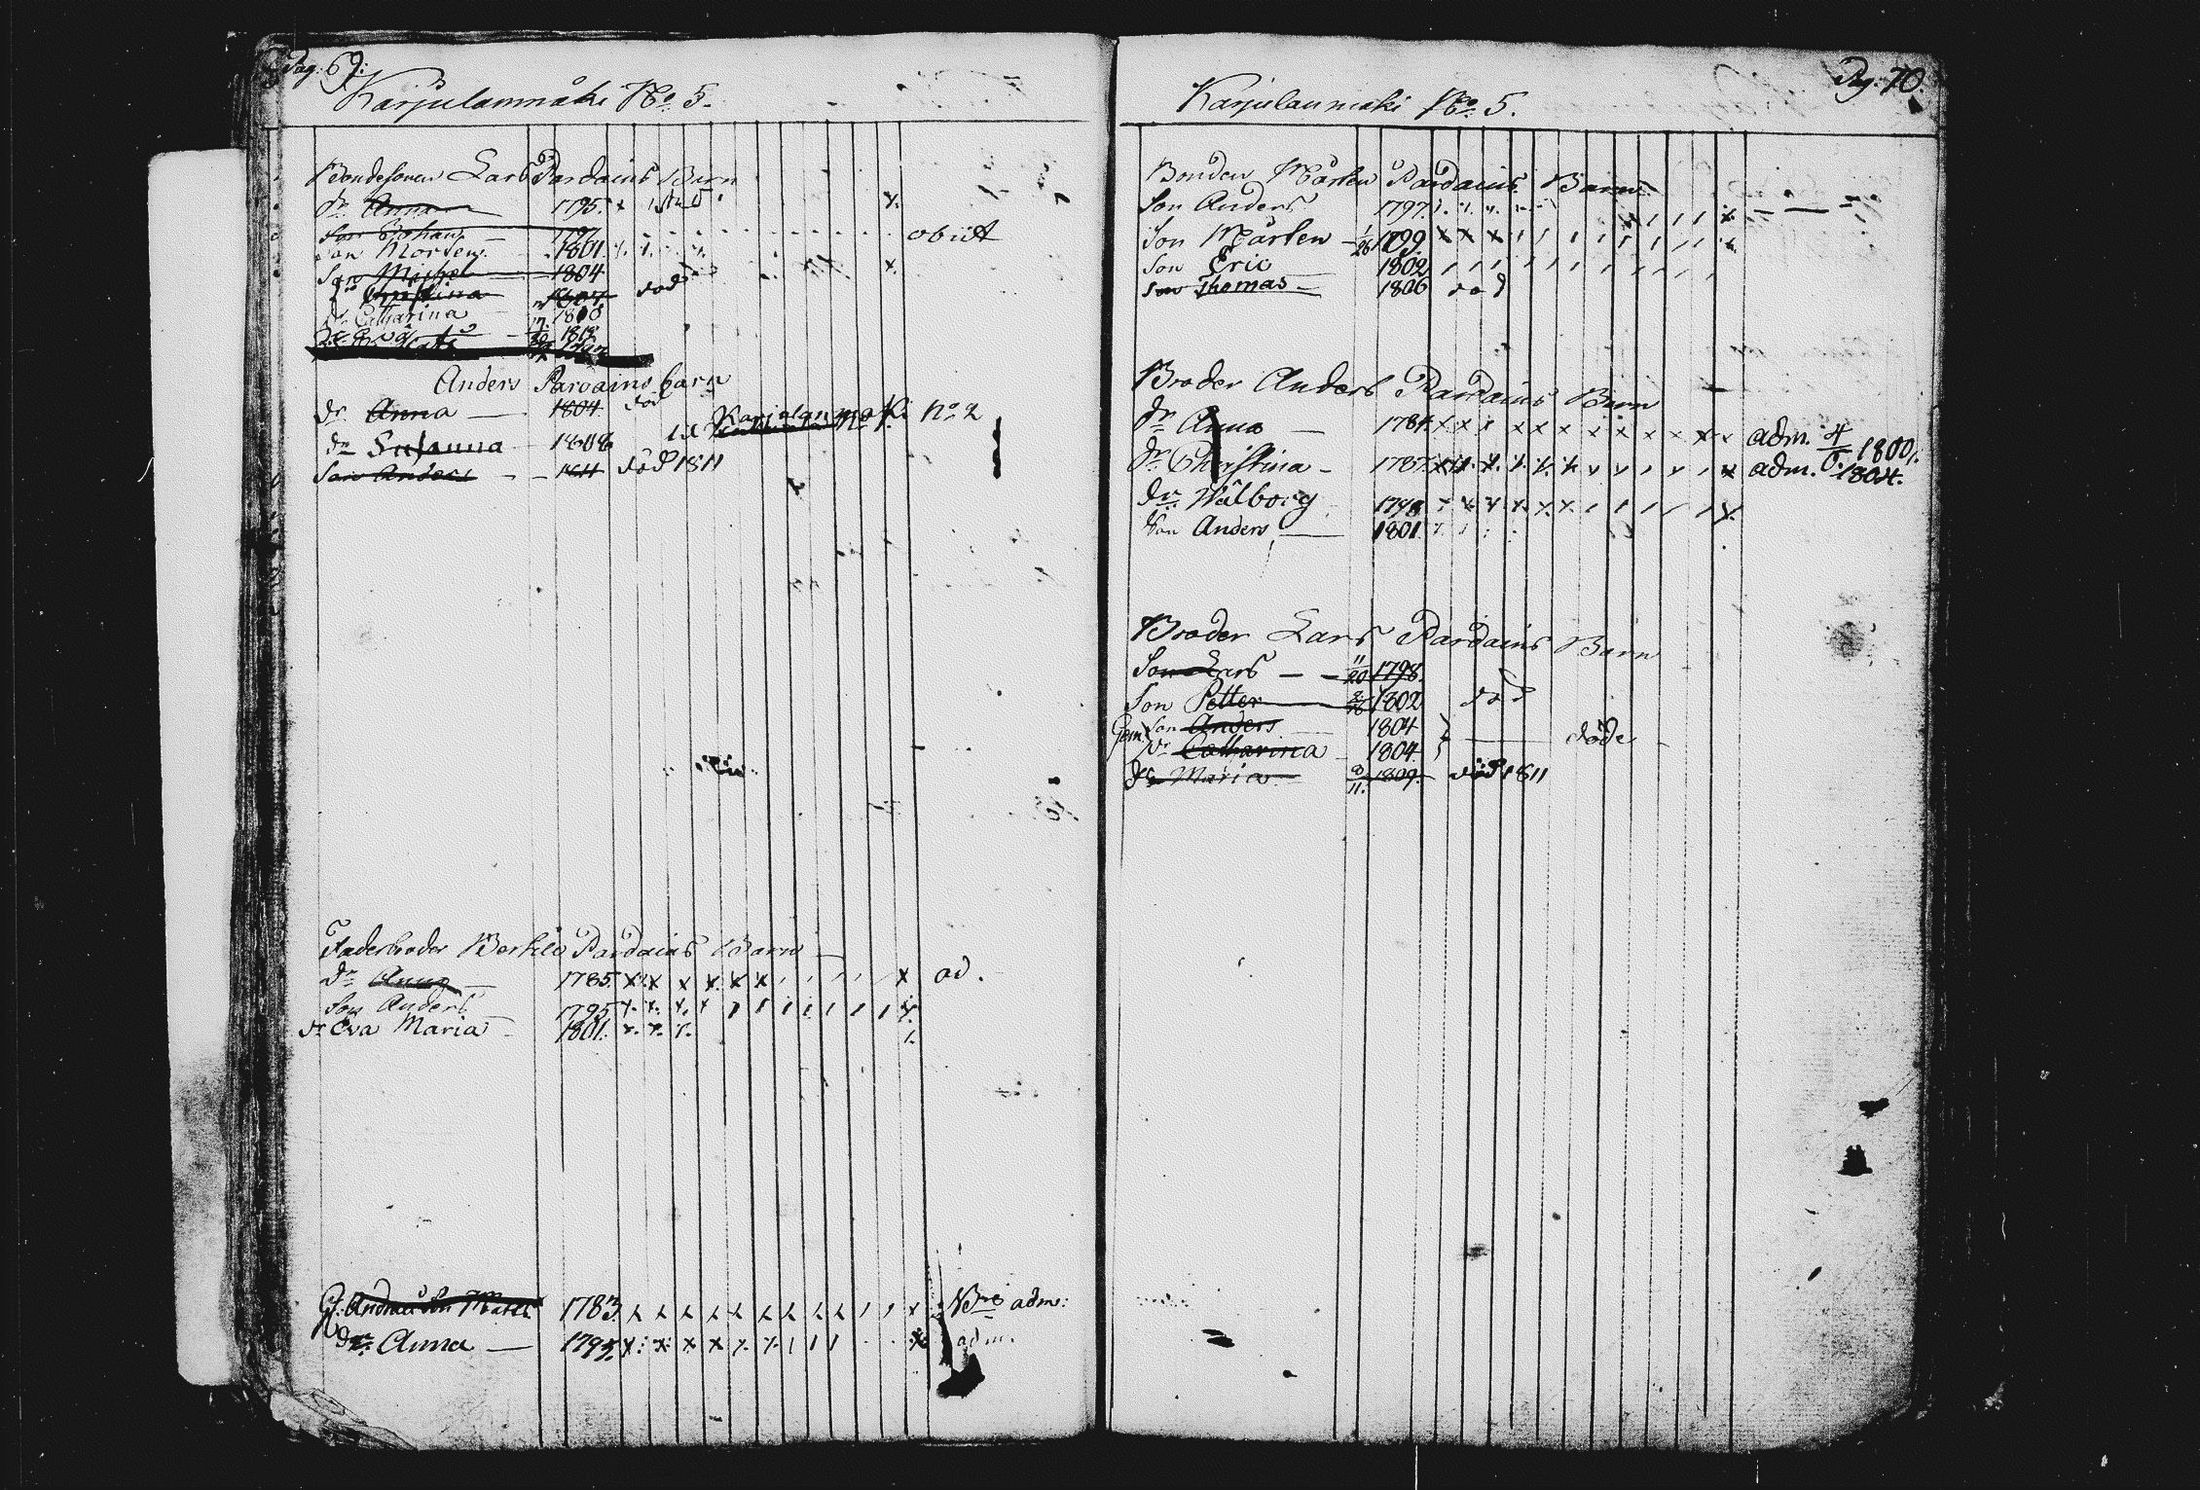 Pag: 69:
Karjulanmäki No 5.
Bondesonen Lars Pardains Barn
dr Anna 1795.
Son Johan obiit
Son Morten 1801.
Son Michel 1804
dr Christina 1807 död
dr Catharina 1808
dr Eva 1812
Anders Pardains barn
dr Anna — 1804 död
dr Susanna — 1808 Karjulanmäki No 2
Son Anders — 1811 död 1811
Faderbroder Bertils Pardains Barn
dr Anna — 1785. ad.
Son Anders 1795
dr Eva Maria 1801.
1783.
adm:
dr Anna — 1793. adm.
Pag: 70.
Karjulanmäki No 5.
Bonden Mårten Pardains Barn
Son Anders 1797.
Son Mårten — 1/26 1799.
Son Eric 1802
Son Thomas — 1806 död
Broder Anders Pardains Barn
dr Anna — 1784. adm. 4/ 1800.
dr Christina — 1787. adm. 1804.
dr Wålborg 1798
Son Anders — 1801.
Broder Lars Pardains Barn
Son Lars — 11/20 1798.
Son Petter 1802 död
Gem. Son Anders 1804
dr Catharina 1804. } — döde
dr Maria 8/11. 1809. död 1811